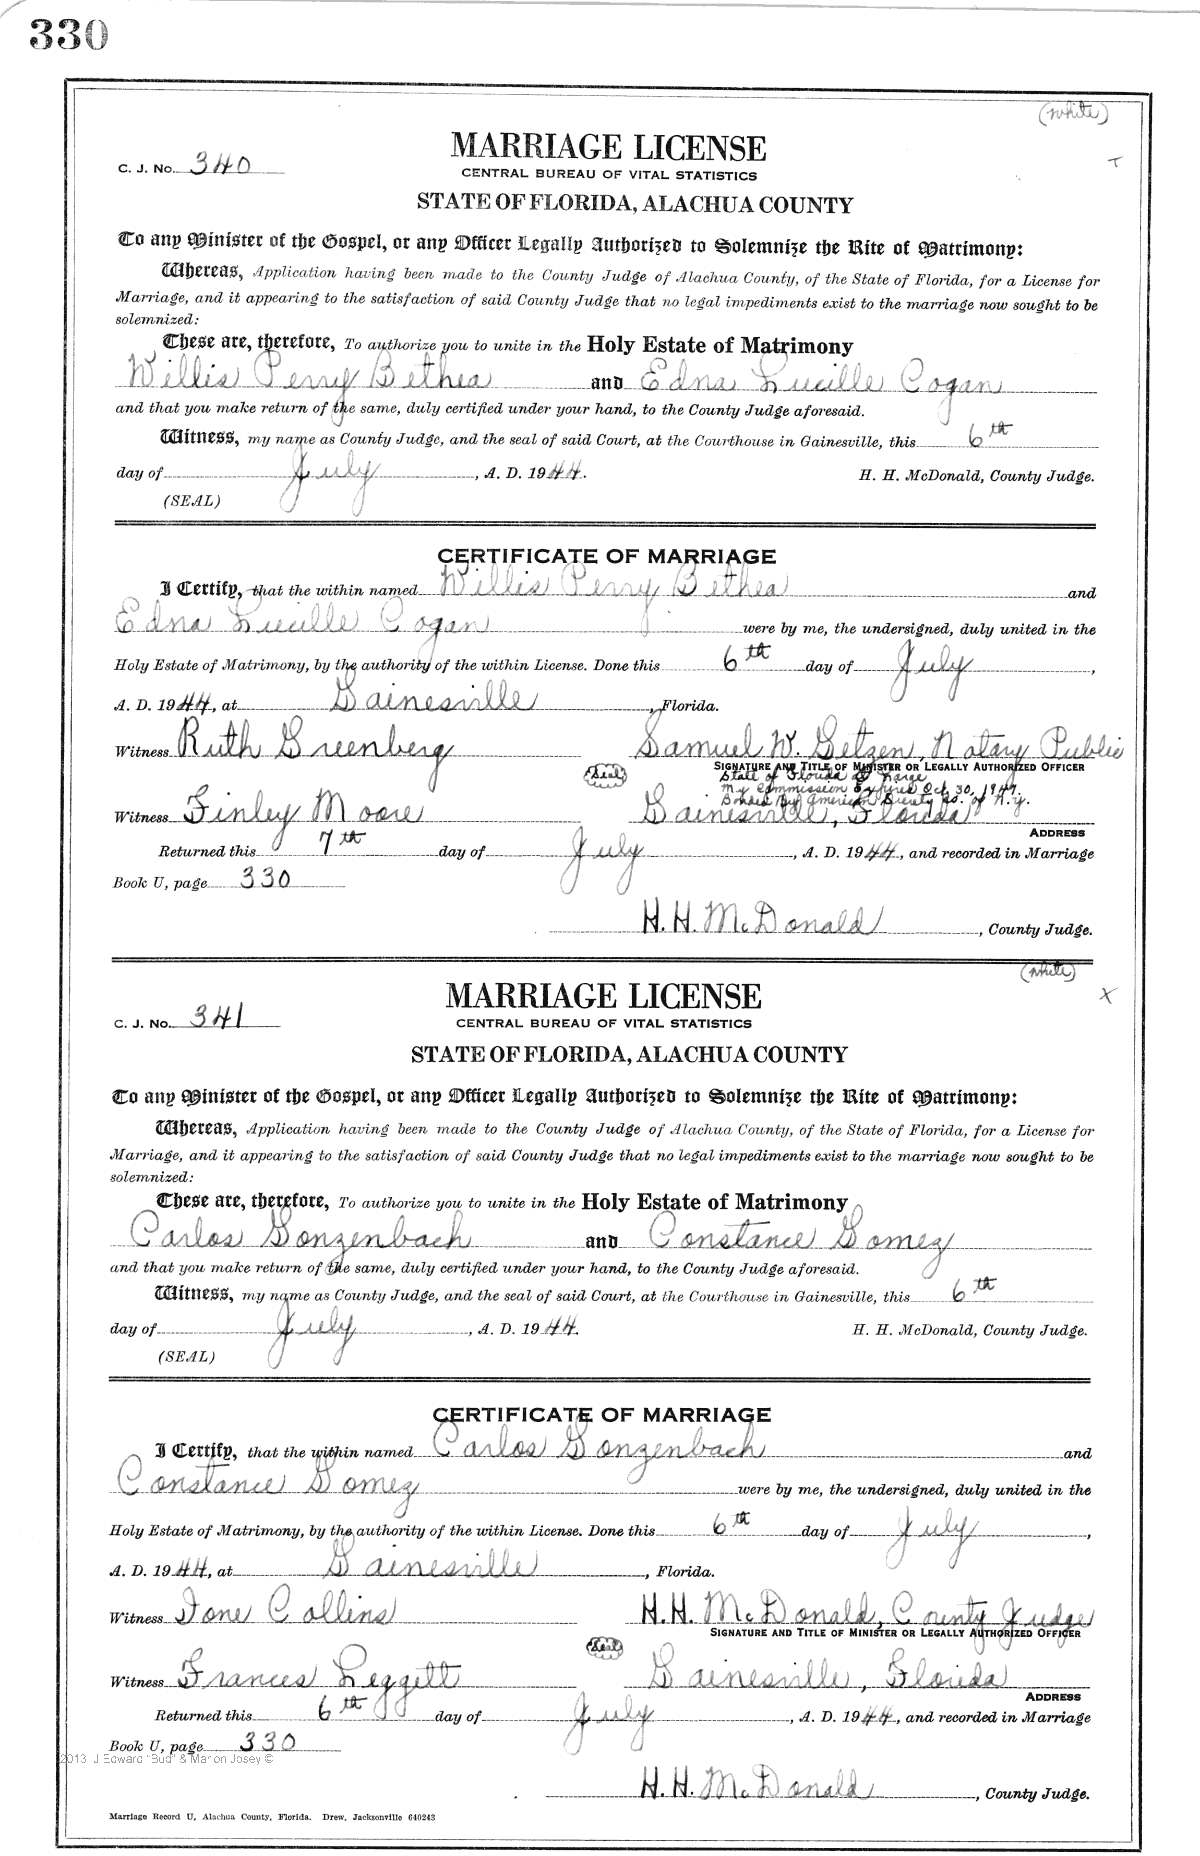 330
(white)
MARRIAGE LICENSE
C. J. No. 340
CENTRAL BUREAU OF VITAL STATISTICS
STATE OF FLORIDA, ALACHUA COUNTY
To any Minister of the Gospel, or any Officer Legally Authorized to Solemnize the Rite of Matrimony:
Whereas, Application having been made to the County Judge of Alachua County, of the State of Florida, for a License for
Marriage, and it appearing to the satisfaction of said County Judge that no legal impediments exist to the marriage now sought to be
solemnized:
These are, therefore, To authorize you to unite in the Holy Estate of Matrimony
Willis Perry Bethea and Edna Lucille Cogan
and that you make return of the same, duly certified under your hand, to the County Judge aforesaid.
Witness, my name as County Judge, and the seal of said Court, at the Courthouse in Gainesville, this 6th
day of July, A. D. 1944. H. H. McDonald, County Judge.
(SEAL)
CERTIFICATE OF MARRIAGE
I Certify, that the within named Willis Perry Bethea and
Edna Lucille Cogan were by me, the undersigned, duly united in the
Holy Estate of Matrimony, by the authority of the within License. Done this 6th day of July,
A. D. 1944, at Gainesville, Florida.
Witness Ruth Greenberg Samuel W. Getzen, Notary Public
SIGNATURE AND TITLE OF MINISTER OR LEGALLY AUTHORIZED OFFICER
(Seal) State of Florida at Large
My Commission Expires Oct. 30, 1947.
Bonded by American Surety Co. of N.Y.
Witness Finley Moore Gainesville, Florida
ADDRESS
Returned this 7th day of July, A. D. 1944, and recorded in Marriage
Book U, page 330
H. H. McDonald, County Judge.
(white)
X
MARRIAGE LICENSE
C. J. No. 341
CENTRAL BUREAU OF VITAL STATISTICS
STATE OF FLORIDA, ALACHUA COUNTY
To any Minister of the Gospel, or any Officer Legally Authorized to Solemnize the Rite of Matrimony:
Whereas, Application having been made to the County Judge of Alachua County, of the State of Florida, for a License for
Marriage, and it appearing to the satisfaction of said County Judge that no legal impediments exist to the marriage now sought to be
solemnized:
These are, therefore, To authorize you to unite in the Holy Estate of Matrimony
Carlos Gonzenbach and Constance Gomez
and that you make return of the same, duly certified under your hand, to the County Judge aforesaid.
Witness, my name as County Judge, and the seal of said Court, at the Courthouse in Gainesville, this 6th
day of July, A. D. 1944. H. H. McDonald, County Judge.
(SEAL)
CERTIFICATE OF MARRIAGE
I Certify, that the within named Carlos Gonzenbach and
Constance Gomez were by me, the undersigned, duly united in the
Holy Estate of Matrimony, by the authority of the within License. Done this 6th day of July,
A. D. 1944, at Gainesville, Florida.
Witness Ione Collins H. H. McDonald, County Judge
SIGNATURE AND TITLE OF MINISTER OR LEGALLY AUTHORIZED OFFICER
(Seal)
Witness Frances Leggett Gainesville, Florida
ADDRESS
Returned this 6th day of July, A. D. 1944, and recorded in Marriage
Book U, page 330
2013 J Edward "Bud" & Marion Josey ©
H. H. McDonald, County Judge.
Marriage Record U, Alachua County, Florida. Drew, Jacksonville 640243